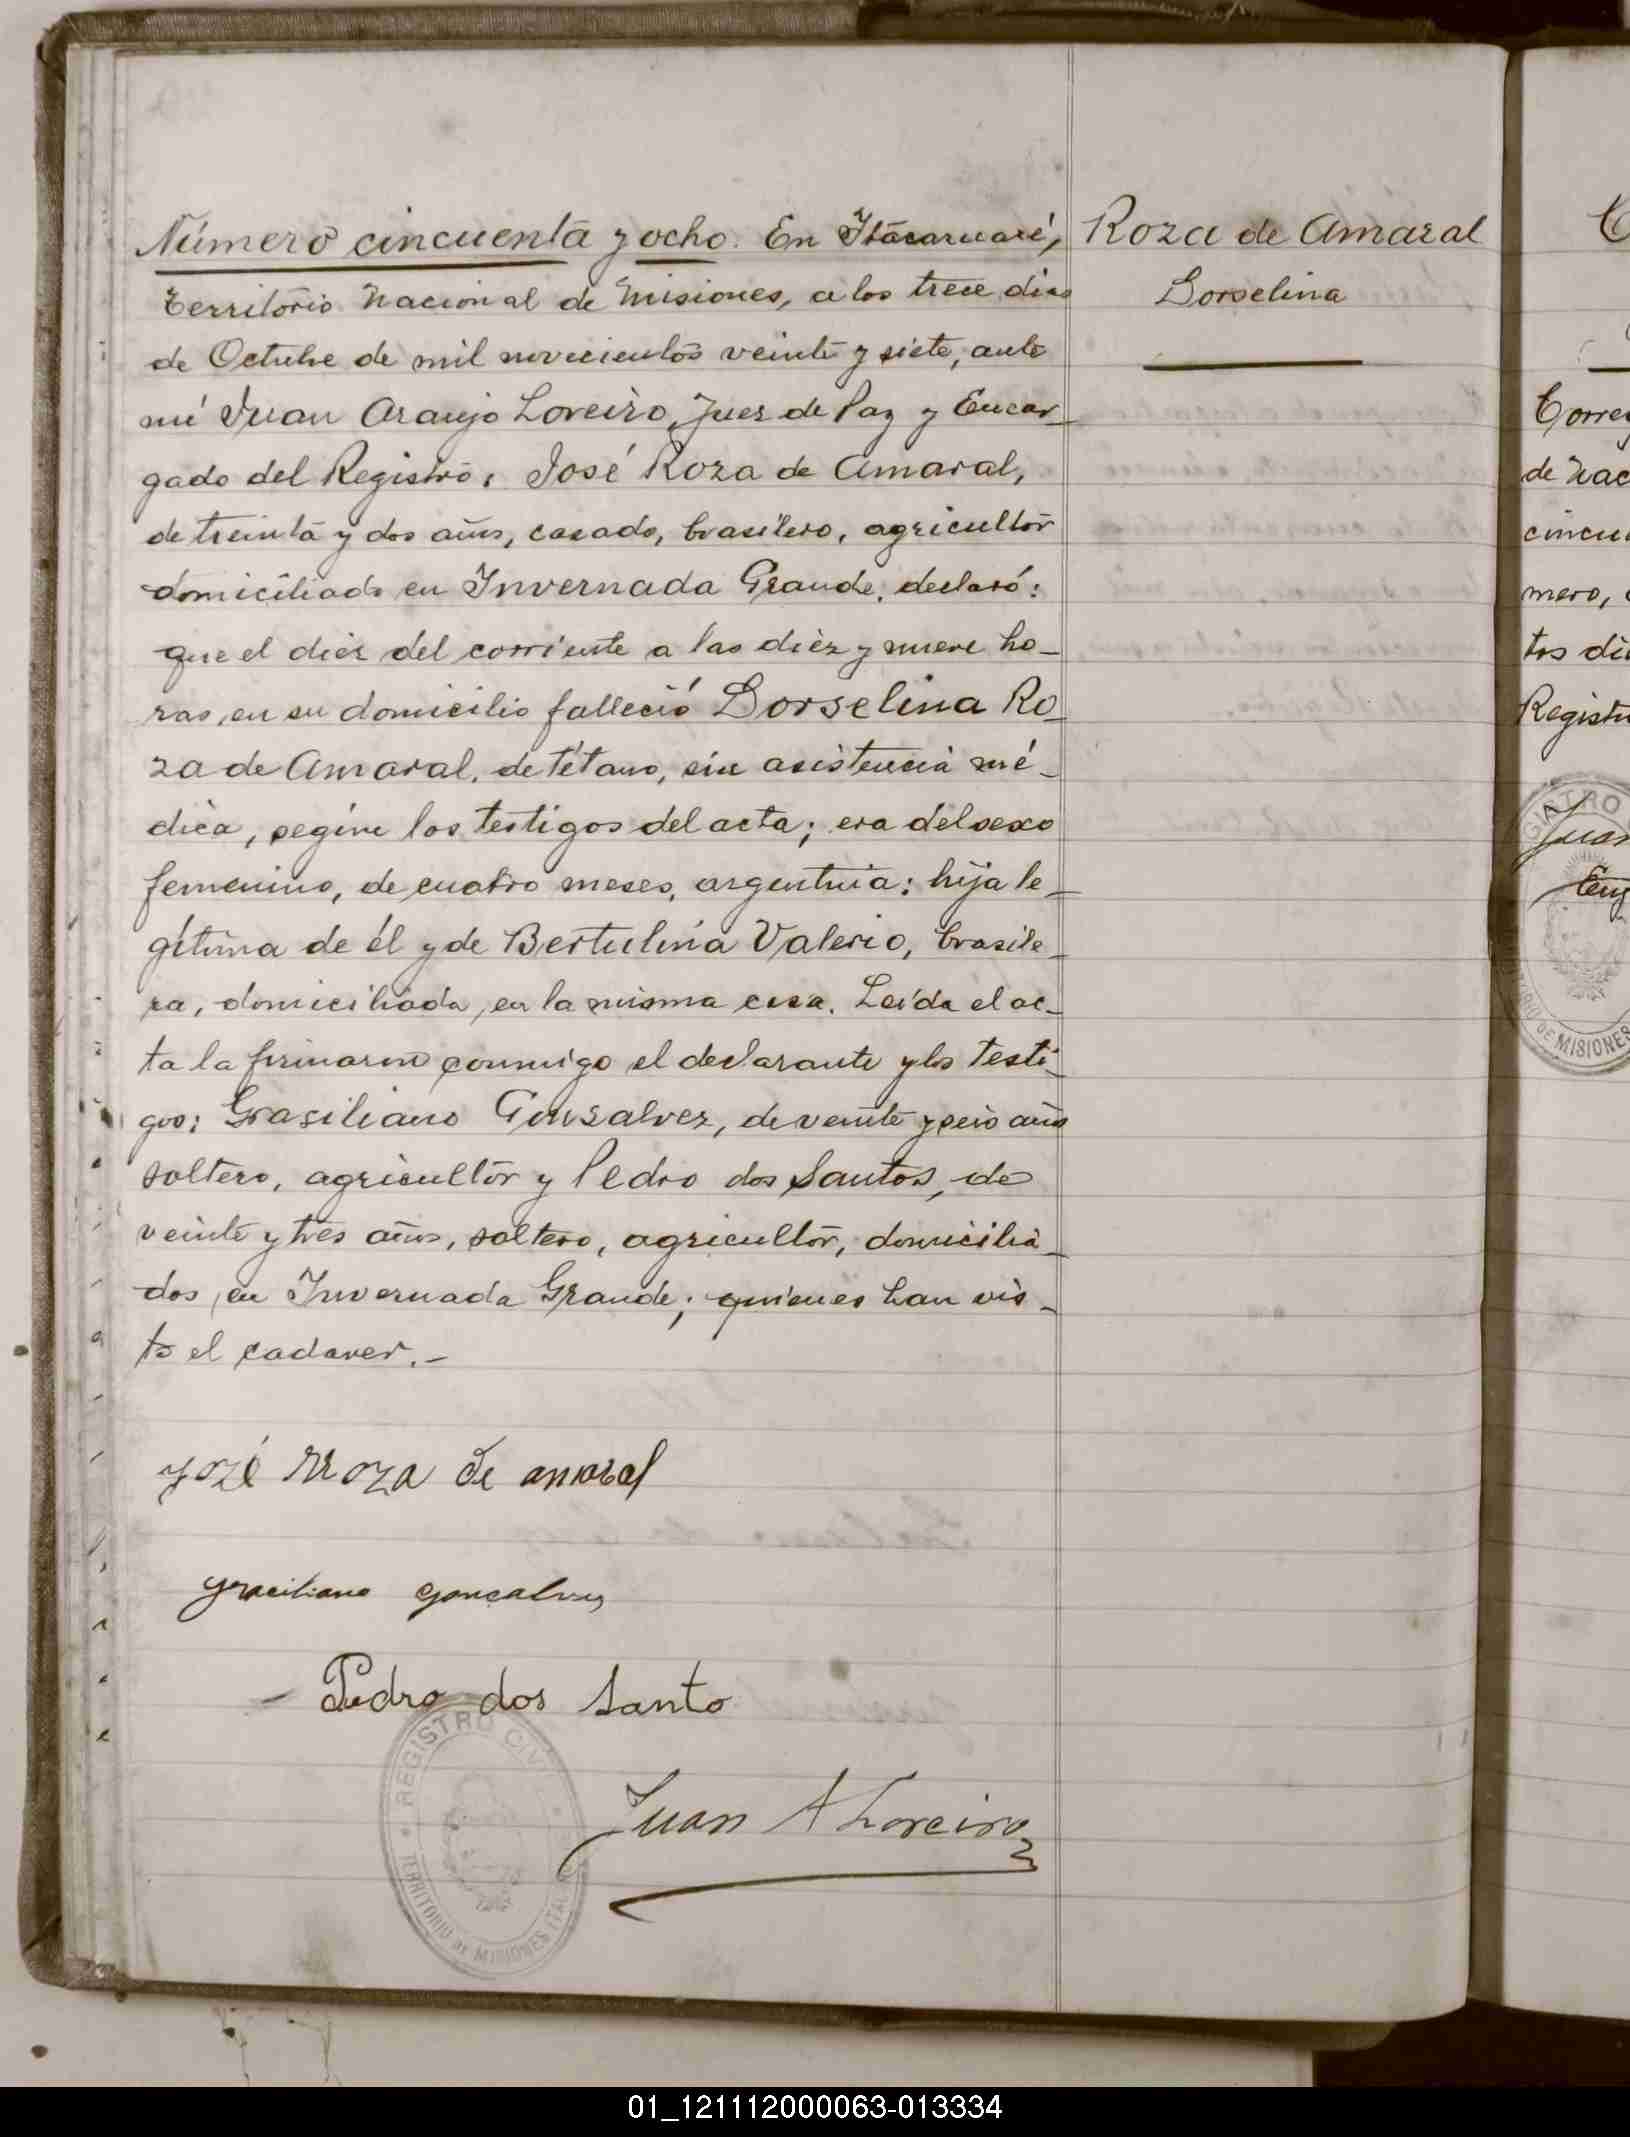 Número cincuenta y ocho. En Itacaruaré,
territorio Nacional de Misiones, a los trece dias
de Octubre de mil novecientos veinte y siete, ante
mi Juan Araujo Loreiro, Juez de Paz y Encar-
gado del Registro, José Roza de Amaral,
de treinta y dos años, casado, brasilero, agricultor
domiciliado en Invernada Grande, declaró:
que el diez del corriente a las diez y nueve ho-
ras, en su domicilio falleció Dorselina Ro-
za de Amaral, de tétano, sin asistencia mé-
dica, según los testigos del acta; era del sexo
femenino, de cuatro meses, argentina; hija le-
gítima de él y de Bertulina Valerio, brasile-
ra, domiciliada, en la misma casa. Leída el ac-
ta la firmaron conmigo el declarante y los testi-
gos: Grasiliano Gonsalvez, de veinte y seis años
soltero, agricultor y Pedro dos Santos, de
veinte y tres años, soltero, agricultor, domicilia-
dos, en Invernada Grande; quienes han vis-
to el cadaver.-
Jozé Rroza de amaral
graciliano gonçalves
- Pedro dos Santo
Juan A Loreiro
REGISTRO CIVIL
TERRITORIO DE MISIONES
Roza de Amaral
Dorselina
de Nac
mero,
MISIONES
01_121112000063-013334